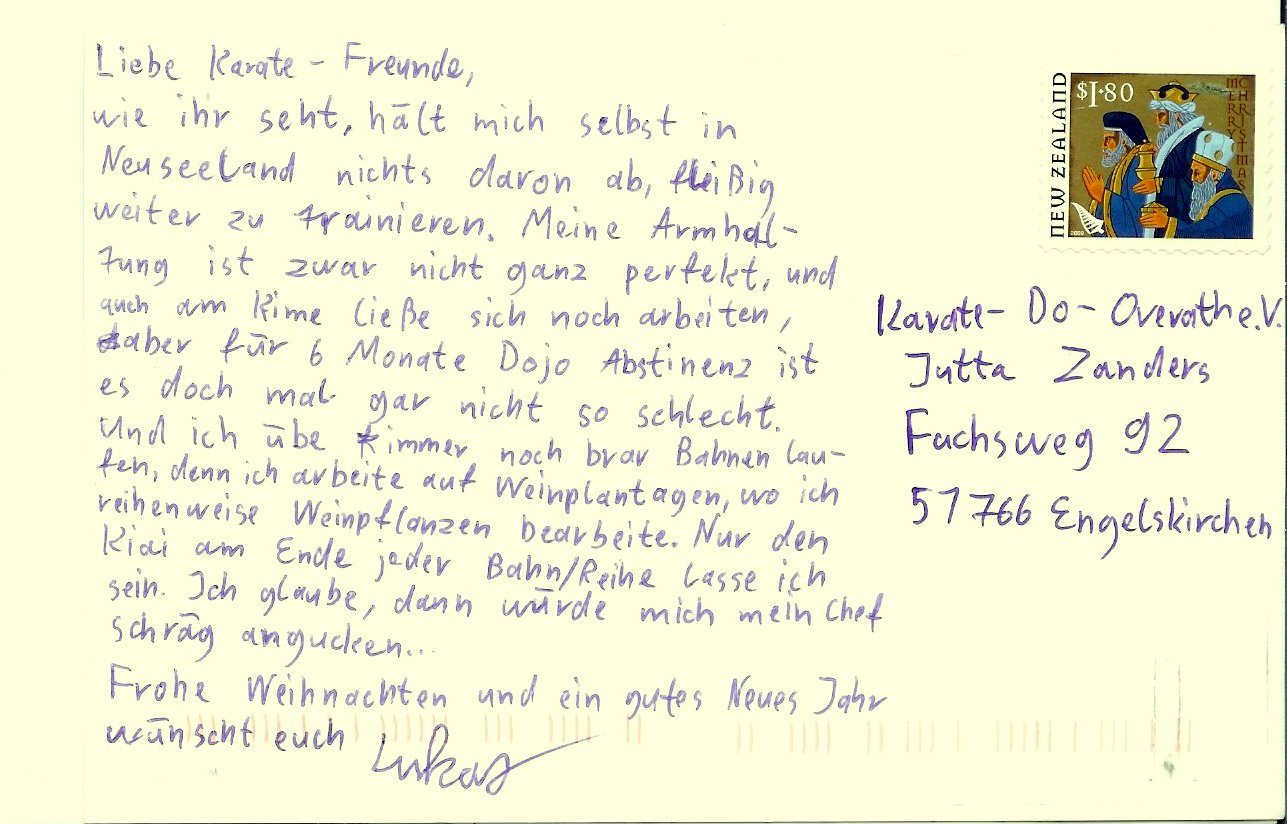 Liebe Karate - Freunde,
wie ihr seht, hält mich selbst in
Neuseeland nichts davon ab, fleißig
weiter zu trainieren. Meine Armhal-
tung ist zwar nicht ganz perfekt, und
auch am Kime ließe sich noch arbeiten,
aber für 6 Monate Dojo Abstinenz ist
es doch mal gar nicht so schlecht.
Und ich übe immer noch brav Bahnen lau-
fen, denn ich arbeite auf Weinplantagen, wo ich
reihenweise Weinpflanzen bearbeite. Nur den
Kiai am Ende jeder Bahn/Reihe lasse ich
sein. Ich glaube, dann würde mich mein Chef
schräg angucken...
Frohe Weihnachten und ein gutes Neues Jahr
wünscht euch Lukas
NEW ZEALAND
$1.80
MERRY
CHRISTMAS
2009
Karate- Do- Overath e.V.
Jutta Zanders
Fuchsweg 92
51766 Engelskirchen